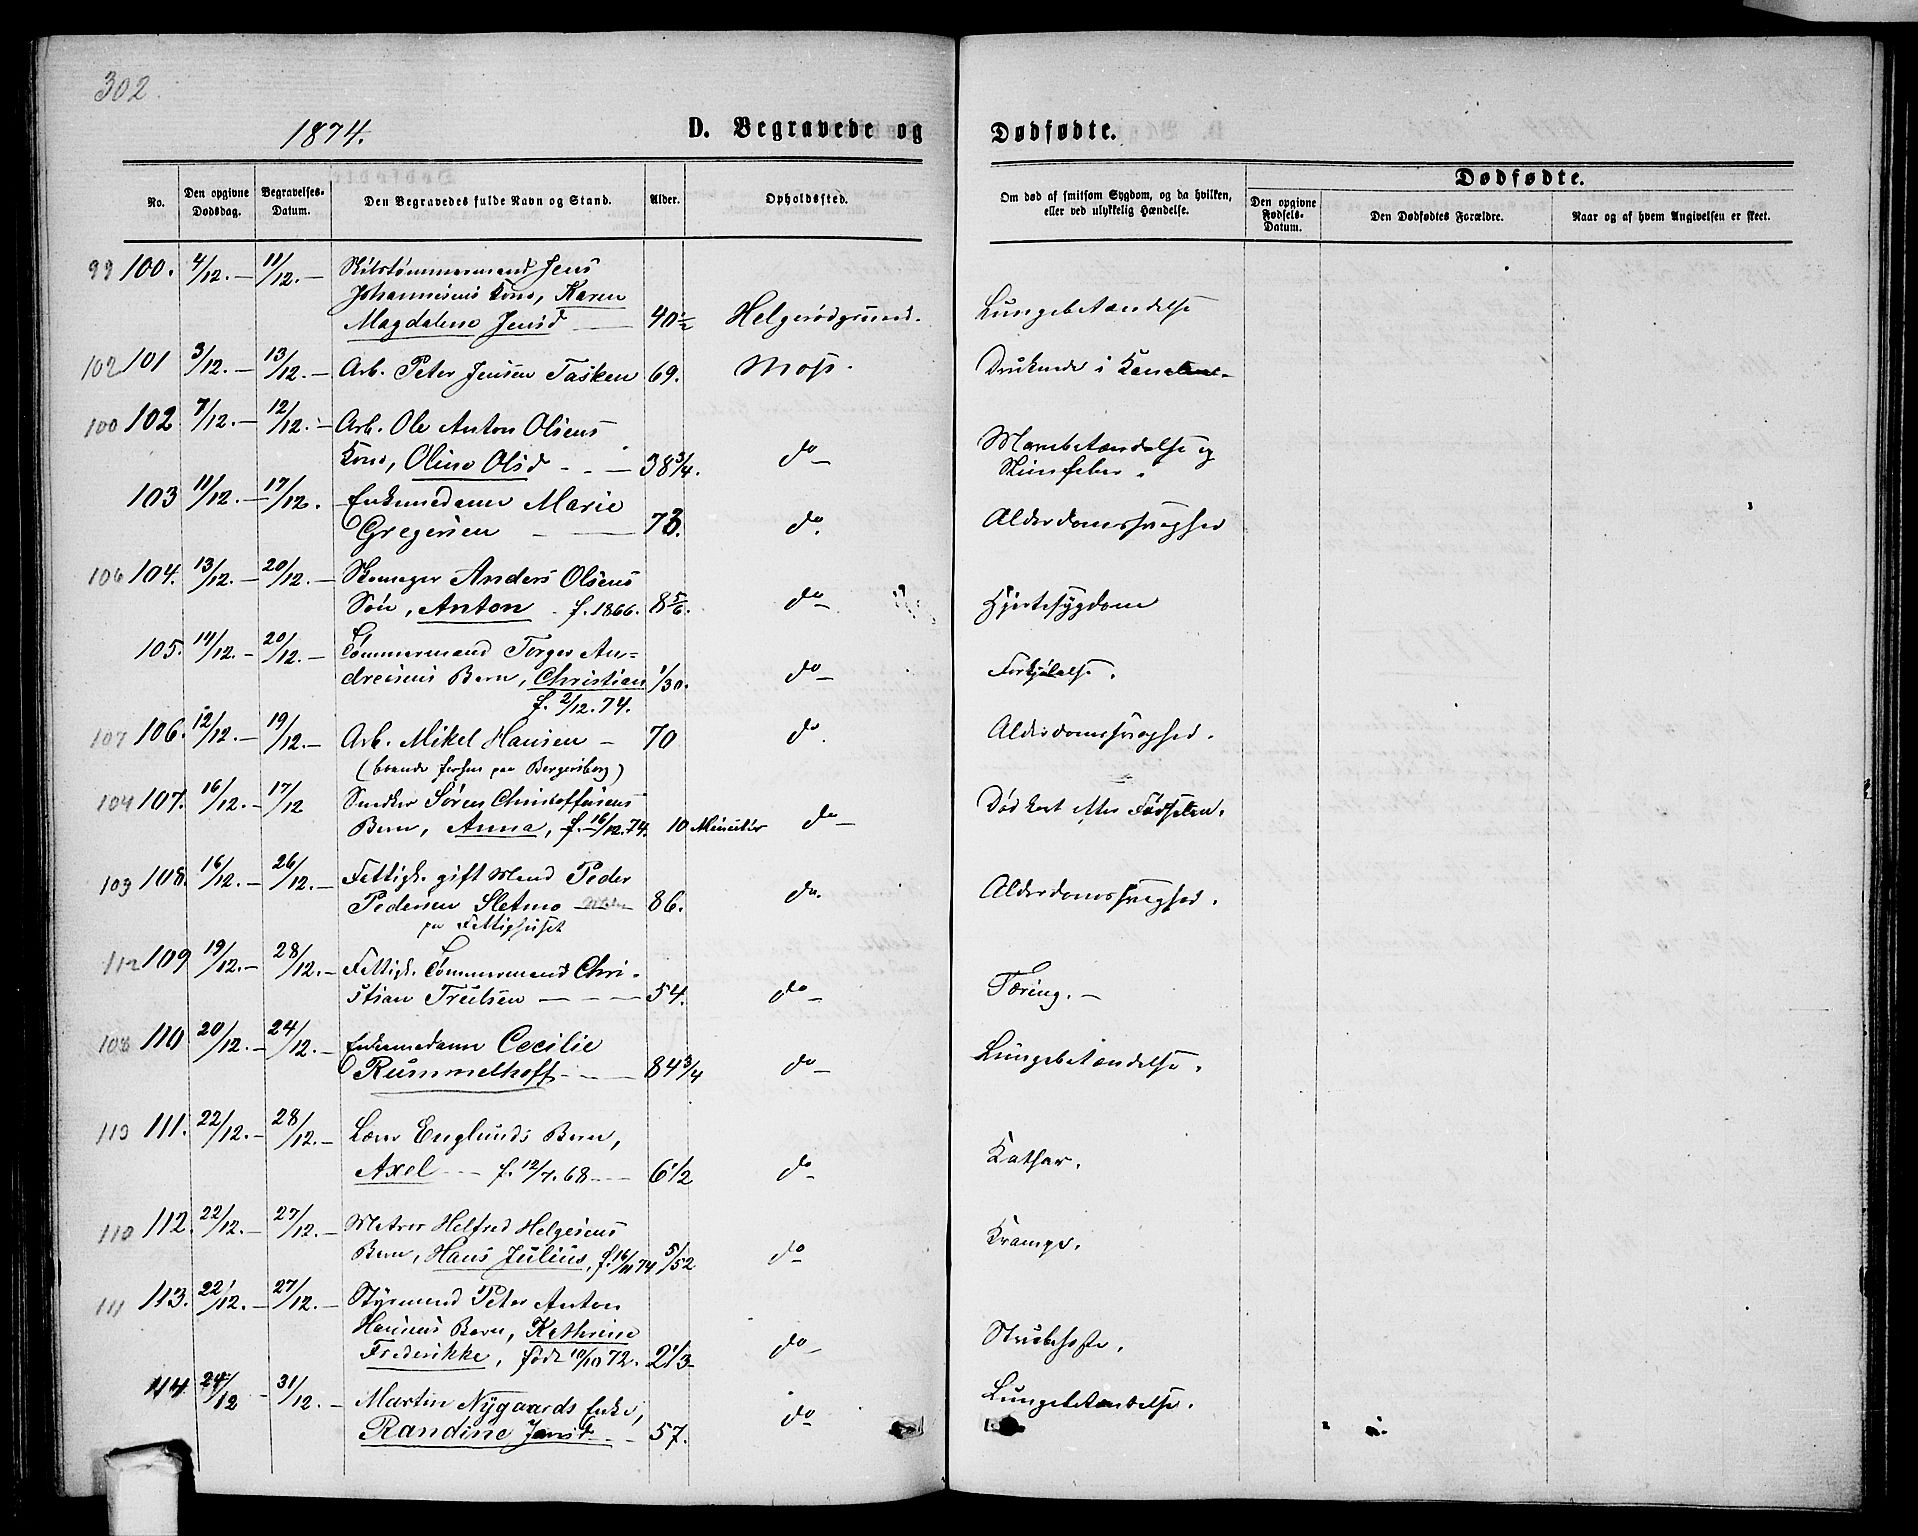 302
1874.
D. Begravede og Dødfødte.
No.
Den opgivne Dødsdag.
Begravelses-Datum.
Den Begravedes fulde Navn og Stand.
Alder.
Opholdssted.
Om død af smitsom Sygdom, og da hvilken,
eller ved ulykkelig Hændelse.
Dødfødte.
Den opgivne Fødsels-Datum.
Den Dødfødtes Forældre.
Naar og af hvem Angivelsen er skeet.
99 100. 4/12. – 11/12. – Skibstømmermand Jens
Johannesens Kone, Karen
Magdalene Jensd — 40½ Helgerødgrund. Lungebetændelse
102 101 3/12. – 13/12. – Arb. Peter Jensen Tasken 69. Moss. Druknede i Kanalen
100 102 7/12. – 12/12. – Arb. Ole Anton Olsens
Kone, Oline Olsd – 38 3/4. do Mavebetændelse og
103 11/12. – 17/12. – Enkemadame Marie
Gregersen — 73. do. Alderdomssvaghed
106 104. 13/12. – 20/12. – Skomager Anders Olsens
Søn, Anton . f. 1866. 8 5/6. do Hjertesygdom
105. 14/12. – 20/12. – Tømmermand Torger An-
dreisens Barn, Christian 1/30. do Forkjølelse.
f. 2/12. 74.
107 106. 12/12. – 19/12. – Arb. Mikel Hansen – 70 do Alderdomssvaghed.
(boende forhen paa Bergersborg)
104 107. 16/12. – 17/12 Snedker Søren Christoffersens
Barn, Anna, f. 16/12. 74. 10 Minutter do Død kort efter Fødselen.
109 108. 16/12. – 26/12. – Fattigl. gift Mand Peder
Pedersen Sletmo 86. do. Alderdomssvaghed.
paa Fattighuset
112 109 19/12. – 28/12. – Fattigl. Tømmermand Chri-
stian Truelsen — 54. do Tæring. –
108 110 20/12. – 24/12. – Enkemadame Cecilie
Rummelhoff — 84 3/4 do Lungebetændelse.
113 111. 22/12. – 28/12. – Englunds Barn,
Axel — f. 12/7. 68 — 6 1/2 do Kathar.
110 112. 22/12. – 27/12. – Matros Helfred Helgesens
Barn, Hans Julius, f. 16/11 74 5/52 do Krampe.
111 113. 22/12. – 27/12. – Styrmand Peter Anton
Hansens Barn, Kathrine
Frederikke, født 10/10 72. 2 1/3 do Strubehoste.
114 24/12 – 31/12. – Martin Nygaards Enke,
Randine Jensd — 57. do Lungebetændelse.